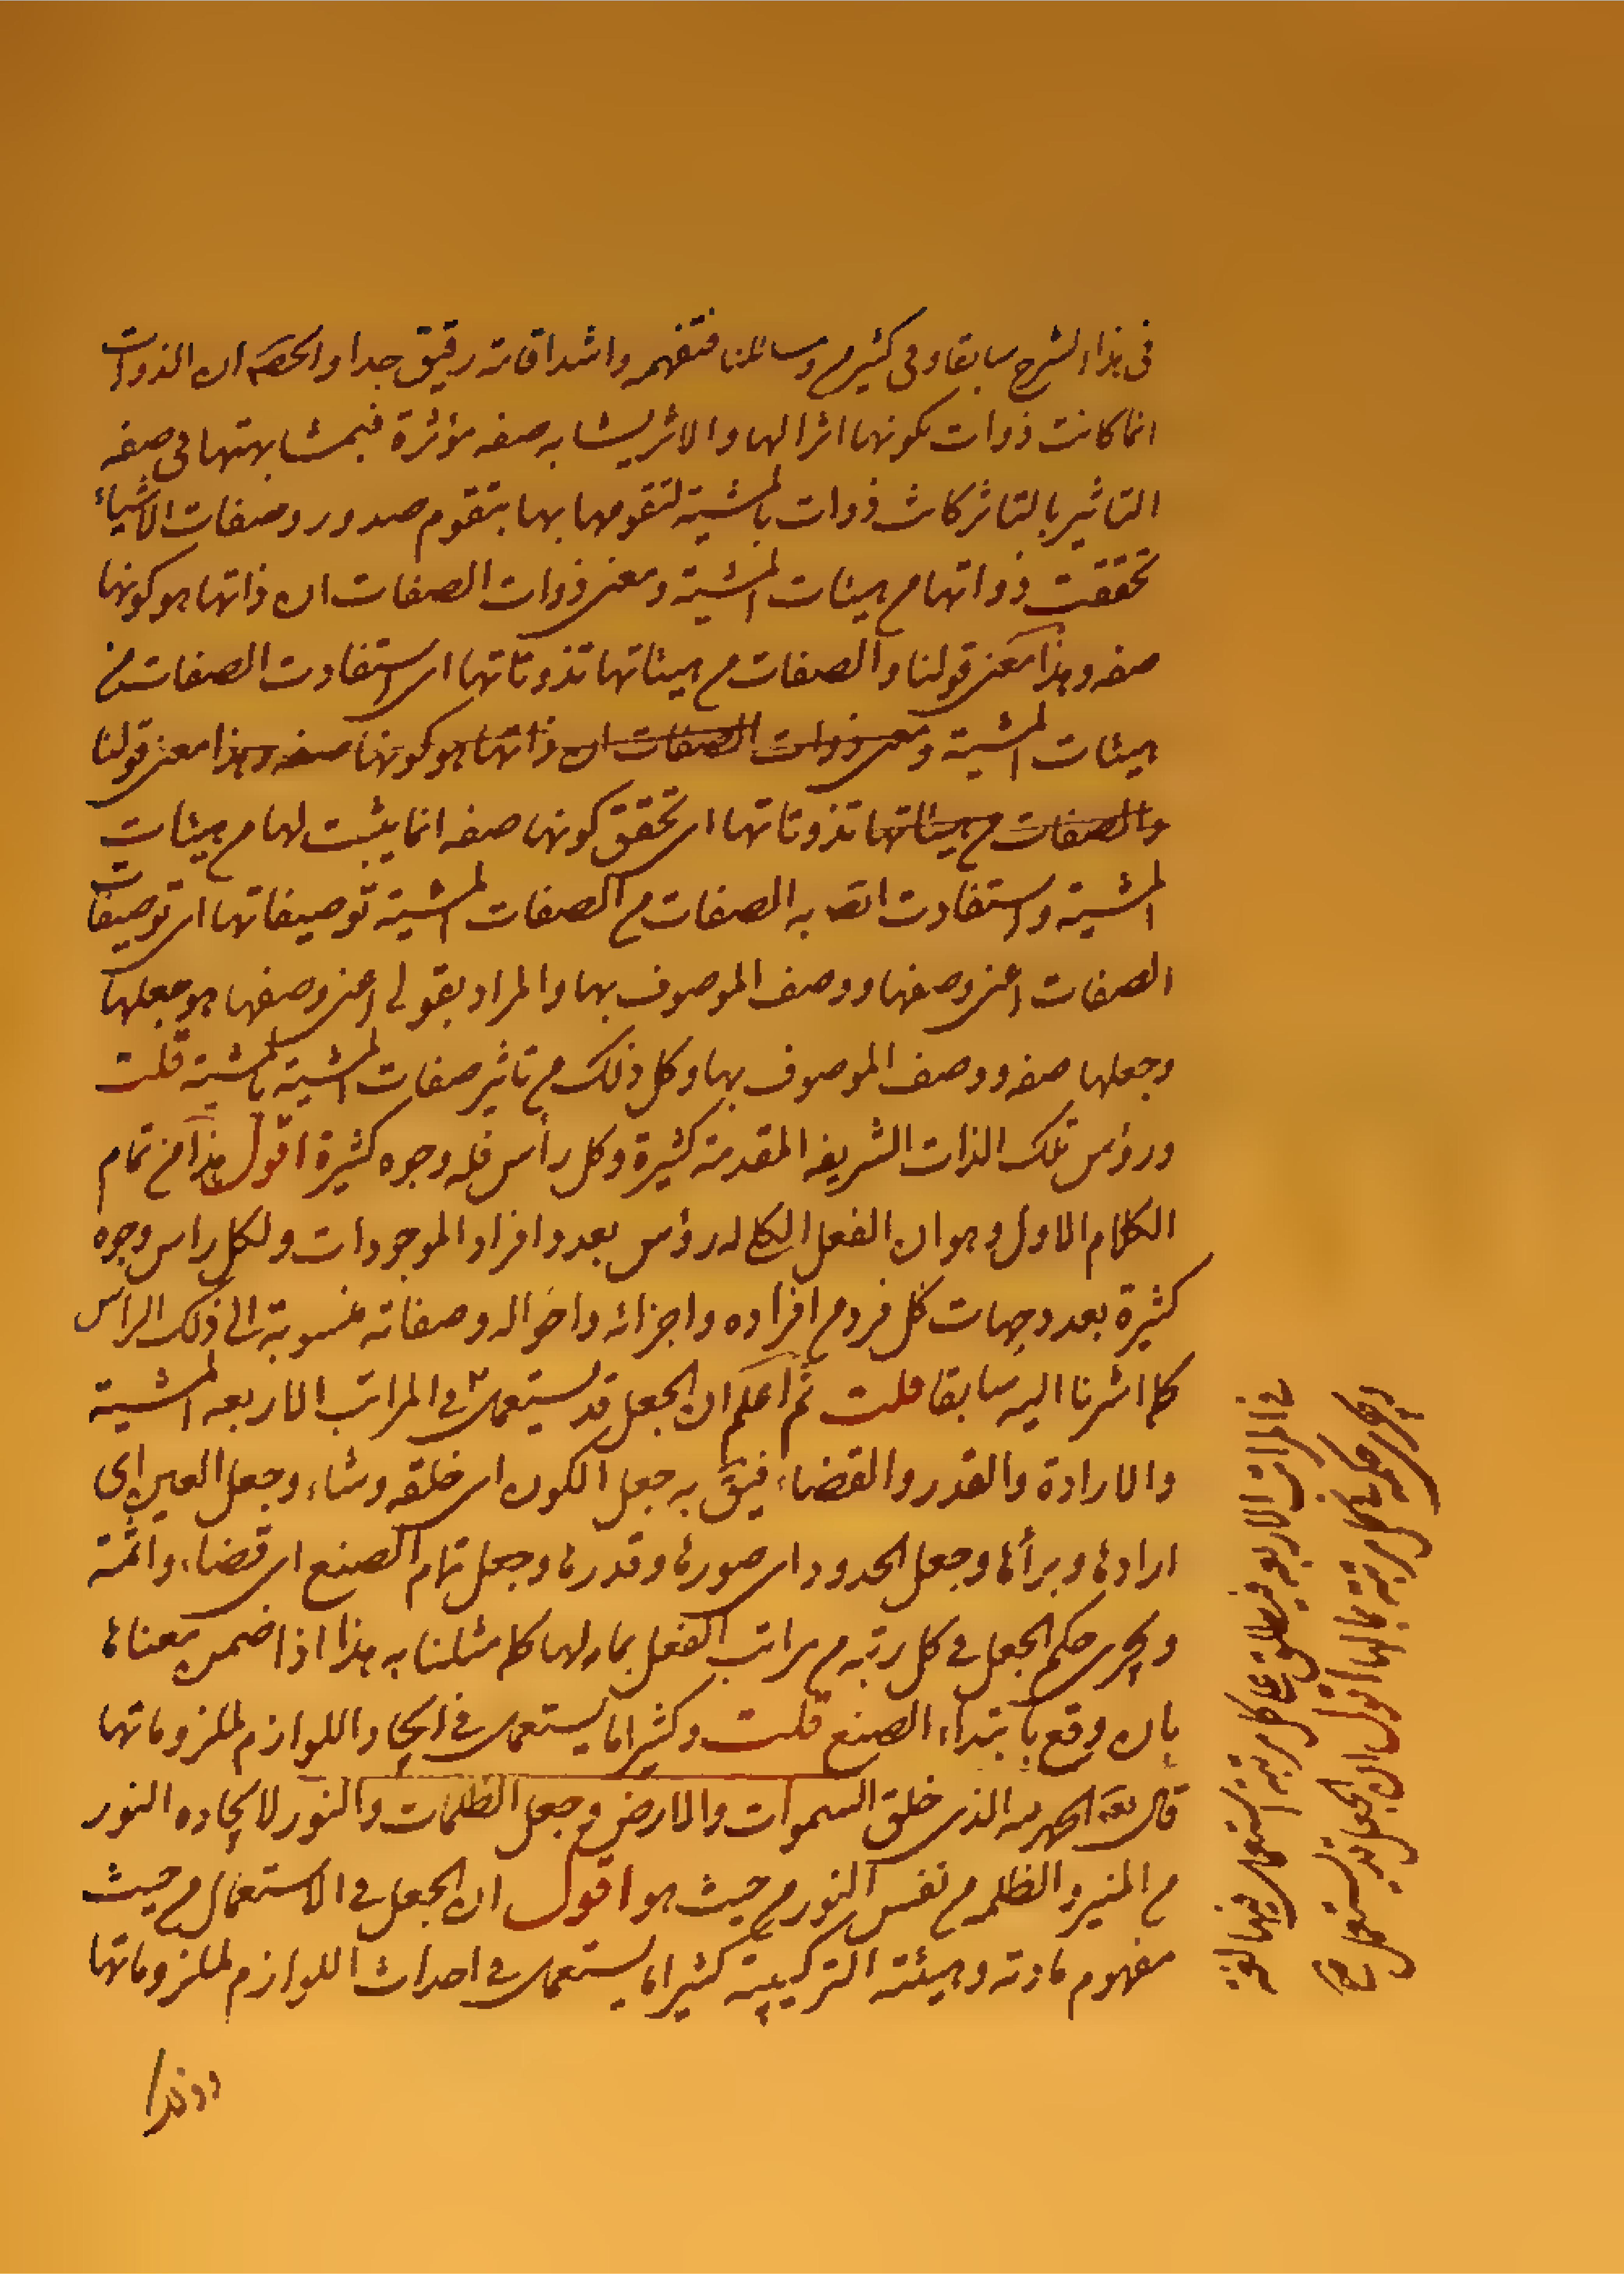 فى هذا الشرح سابقا وفى كثير من رسائلنا فتفهمه واشدا فانه دقيق جدا والحصه ان الذوات
انما كانت ذوات بكونها اثرا لها والاثر يشابه صفه مؤثرة فبمشابهتها فى صفه
التاثير بالتاثر كانت ذوات بالمشية لتقومها بها بتقوم صدور وصفات الاشياء
تحققت ذواتها من هيئات المشية ومعنى ذوات الصفات ان ذاتها هو كونها
صفه وهذا معنى قولنا والصفات من هيئاتها تذوتاتها اى استفادت الصفات من
هيئات المشية ومعنى ذوات الصفات ان ذاتها هو كونها صفه وهذا معنى قولنا
والصفات من هيئاتها تذوتاتها اى تحقق كونها صفه انما يثبت لها من هيئات
المشية واستفادت ايضا به الصفات من الصفات المشية توصيفاتها اى توصيفات
الصفات اعنى وصفها ووصف الموصوف بها والمراد بقولى اعنى وصفها هو جعلها
وجعلها صفه ووصف الموصوف بها وكل ذلك من تاثير صفات المشية بالمشية قلت
ورؤس تلك الذات الشريفه المقدسة كثيرة وكل رأس فله وجوه كثيرة اقول هذا من تمام
الكلام الاول وهو ان الفعل الكلى له رؤس بعدد افراد الموجودات ولكل راس وجوه
كثيرة بعدد جهات كل فرد من افراده واجزائه واحواله وصفاته منسوبة الى ذلك الراس
كما اشرنا اليه سابقا قلت ثم اعلم ان الجعل قد يستعمل فى المراتب الاربعه المشية
والارادة والقدر والقضاء فيق به جعل الكون اى خلقه وشاء وجعل العين اى
ارادها وبرأها وجعل الحدود اى صورها وقدرها وجعل تمام الصنع اى قضاه واتمه
ويجرى حكم الجعل فى كل رتبه من مراتب الفعل بما لها كما مثلنا به هذا اذا ضمن معناها
بان وقع بابتداء الصنع قلت وكثيرا ما يستعمل فى ايجاد اللوازم لملزوماتها
قال تعه الحمد لله الذى خلق السموات والارض وجعل الظلمات والنور لايجاده النور
من المنير والظلمه من نفس النور من حيث هو اقول ان الجعل فى الاستعمال من حيث
مفهوم مادته وهيئته التركيبية كثيرا ما يستعمل فى احداث اللوازم لملزوماتها
ويجرى حكمه فى كل مرتبة بما لها اقول ان الجعل قد يستعمل
فى المراتب الاربعه فيطلق على كل مرتبه استعمل فيها